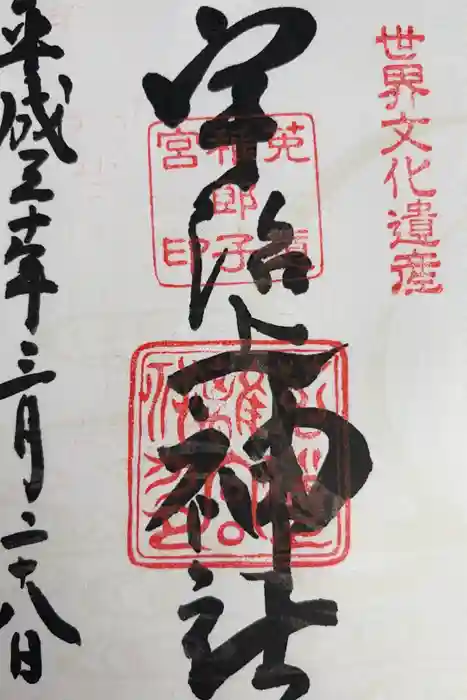 世界文化遺産
宇治上神社
菟道
稚郎子
宮印
平成三十年三月二十八日